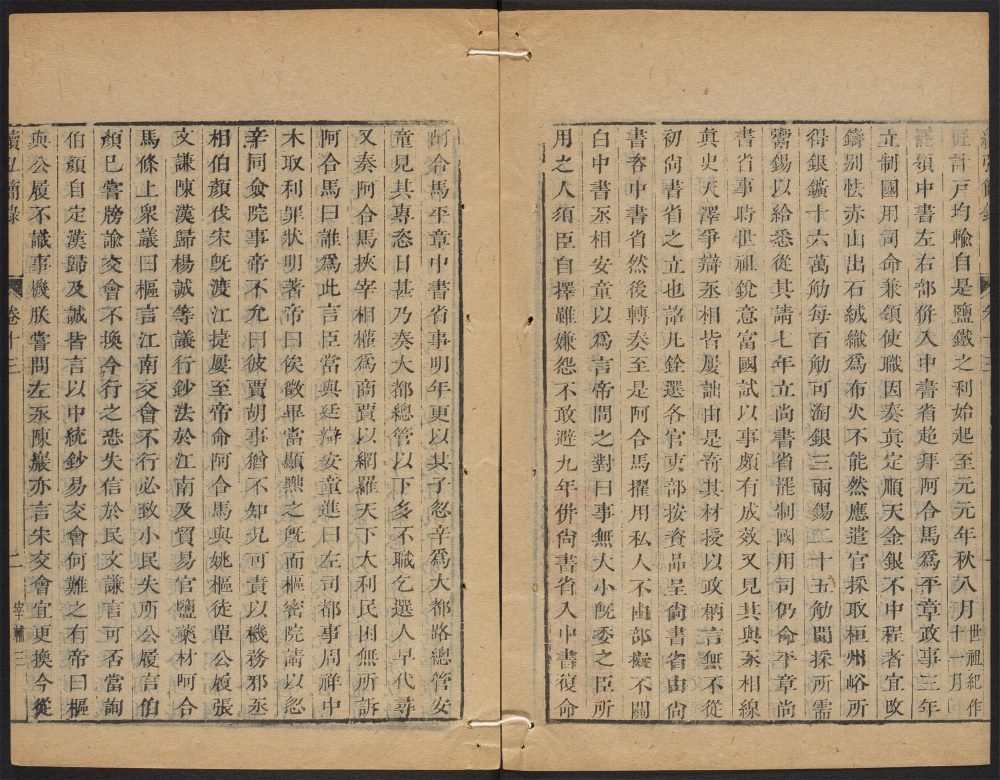 匠計戸均輸自是鹽鐵之利始起至元元年秋八月世祖紀作十一月
罷領中書左右部併入中書省超拜阿合馬爲平章政事三年
立制國用司命兼領使職因奏眞定順天金銀不中程者宜改
鑄别怯赤山出石絨織爲布火不能然應遣官採取桓州峪所
得銀鑛十六萬觔每百觔可淘銀三兩錫二十五觔開採所需
鬻錫以給悉從其請七年立尚書省罷制國用司仍命平章尚
書省事時世祖銳意富國試以事頗有成效又見其與丞相線
眞史天澤爭辯丞相皆屢詘由是奇其材授以政柄言無不從
初尚書省之立也詔凡銓選各官吏部按資品呈尚書省由尚
書咨中書省然後轉奏至是阿合馬擢用私人不由部擬不關
白中書丞相安童以爲言帝問之對曰事無大小旣委之臣所
用之人須臣自擇雖嫌怨不敢避九年併尚書省入中書復命
阿合馬平章中書省事明年更以其子忽辛爲大都路總管安
童見其專恣日甚乃奏大都總管以下多不職乞選人早代尋
又奏阿合馬挾宰相權爲商賈以網羅天下大利民困無所訴
阿合馬曰誰爲此言臣當與廷辯安童進曰左司都事周祥中
木取利罪狀明著帝曰俟徹畢當顯黜之旣而樞密院請以忽
辛同僉院事帝不允曰彼賈胡事猶不知況可責以機務邪丞
相伯顔伐宋旣渡江捷屢至帝命阿合馬與姚樞徒單公履張
文謙陳漢歸楊誠等議行鈔法於江南及貿易官鹽藥材阿合
馬條上衆議曰樞言江南交會不行必致小民失所公履言伯
顔已嘗牓諭交會不換今行之恐失信於民文謙言可否當詢
伯顔自定漢歸及誠皆言以中統鈔易交會何難之有帝曰樞
與公履不識事機朕嘗問左丞陳巖亦言宋交會宜更換今從
續弘簡錄
卷十三
二
宰輔三